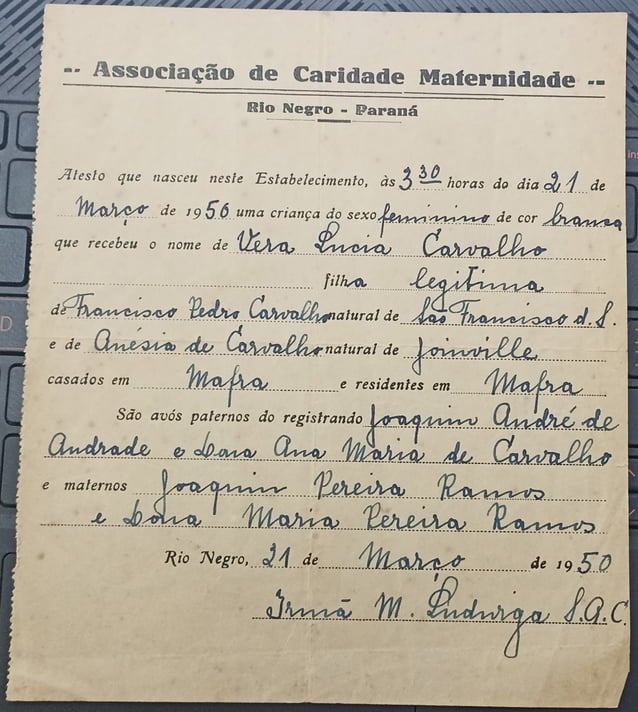 -- Associação de Caridade Maternidade --
Rio Negro - Paraná
Atesto que nasceu neste Estabelecimento, às 3 30 horas do dia 21 de
Março de 1950 uma criança do sexo feminino de cor branca
que recebeu o nome de Vera Lucia Carvalho
filha legitima
de Francisco Pedro Carvalho natural de São Francisco d. S.
e de Anésia de Carvalho natural de Joinville
casados em Mafra e residentes em Mafra
São avós paternos do registrando Joaquim André de
Andrade e Dona Ana Maria de Carvalho
e maternos Joaquim Pereira Ramos
e Dona Maria Pereira Ramos
Rio Negro, 21 de Março de 1950
Irmã M. Ludwiga S.A.C.